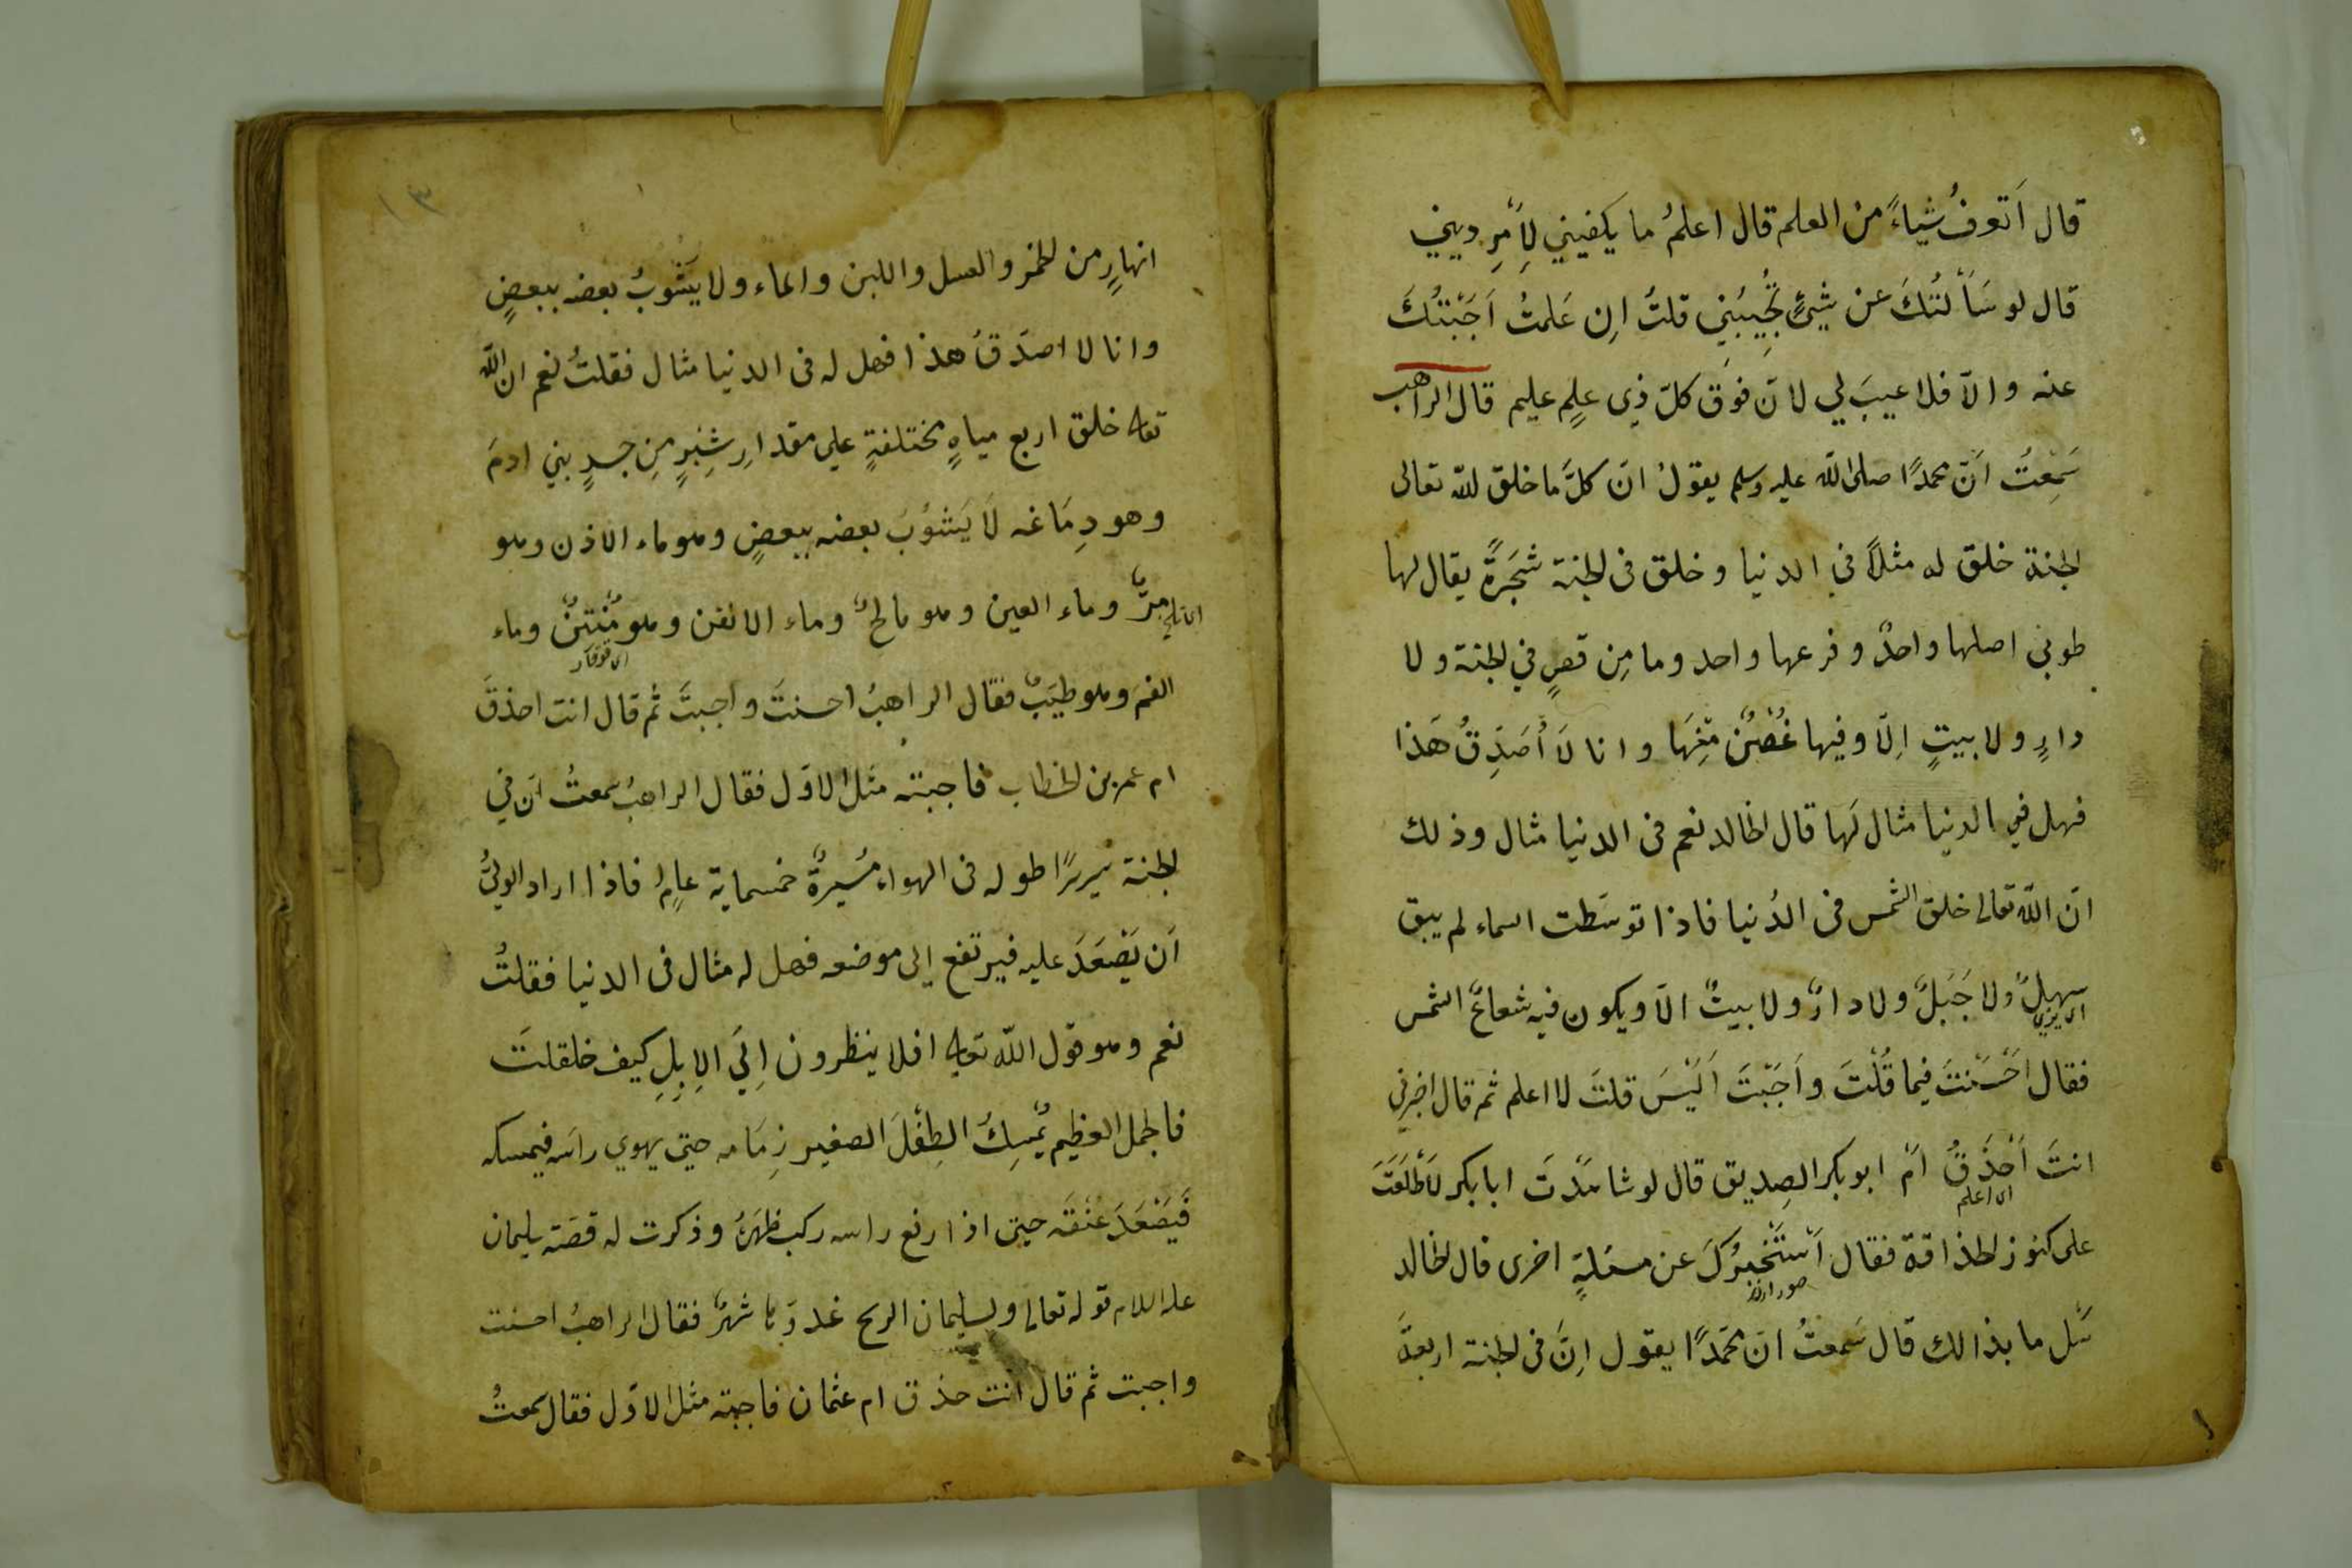 قال اَتعرفُ شيًاءً من العلم قال اعلمُ ما يكفيني لِأَمرِ ديني
قال لو سَأَلتُكَ عن شيئٍ تُجِيبُنِي قلتُ اِن عَلمتُ اَجَبْتُكَ
عنه والّا فلا عيبَ لي لانّ فوَق كلّ ذِي علمٍ عليم قال الراهب
سَمِعتُ اَنّ محمدًا صلى الله عليه وسلم يقولُ انّ كلَّ ما خلق لله تعالى
لجنة خلق له مثلًا في الدنيا وخلق فى لجنة شَجَرةً يقال لها
طوبي اصلها واحدٌ وفرعها واحد وما مِن قصرٍ في لجنة ولا
دارٍ ولا بيتٍ اِلّا وفيها غُصْنٌ مِّنهَا وانا لَا أُصَدِّقُ هَذا
فهل في الدنيا مثال لَها قال لخالد نعم فى الدنيا مثال وذلك
انّ الله تعالى خلق الشمس فى الدُنيا فاذا توسَّطت السماء لم يبق
سهلٌ ولا جَبَلٌ ولا دارٌ ولا بيتٌ الّا ويكون فيه شعاعُ الشمس
فقال اَحْسَنْتَ فيما قُلْتَ واَجَبْتَ اَلَيْسَ قلتَ لا اعلم ثم قال اخبرني
انتَ اَحْذَقُ اَمْ ابو بكر الصِديق قال لو شاهَدْتَ ابابكر لَأَطْلَعْتَ
اى اعلم
على كنوز لحذاقة فقال اَسْتَخْبِرُكَ عن مسئلةٍ اخرى قال لخالد
سَل ما بذالك قال سَمعتُ انّ محَمدًا يقول اِنَّ فى لجنة اربعةَ
١٣
انهارٍ من لخمر والعسل واللبن والماء ولا يَشُوبُ بعضه ببعضٍ
وانا لا اصدّقُ هذا فهل له فى الدنيا مثال فقلتُ نعم ان الله
تعالى خلق اربع مياهٍ مختلفةٍ علي مقدارِ شِبْرٍ مِن جسدٍ بني ادمَ
وهو دِمَاغه لَا يَشوُبُ بعضه ببعضٍ وهو ماء الاذن وهو
مرٌّ وماء العين وهو مالحٌ وماء الانف وهو مُنْتِنٌ وماء
الفم وهو طيّبٌ فقال الراهبُ احسنتَ واجبتَّ ثم قال انت احذقَ
ام عمر بن لخطاب فاجبته مثل الاوّل فقال الراهبُ سمعتُ انّ في
لجنة سريرًا طوله فى الهواء مسُيرةٌ خمسماية عامٍ فاذا اراد الوليُّ
اَن يَصْعَدَ عليه فيرتفع إلى موضعه فهل له مثال فى الدنيا فقلتُ
نعم وهو قول الله تعالى افلا ينظرون اِلَي الِابِلِ كيف خلقلتَ
فالجمل العظيم يُمْسِكُ الطِفْلَ الصغير زِمَامه حتي يهوي راسَه فيمسكه
فَيَصْعَدَ عُنُقَه حتي اذا رفع راسه ركب ظهرَهُ وذكرت له قصّة سليمان
عليه السلام قوله تعالى ولسليمان الريح غدوّها شهرٌ فقال الراهبُ احسنت
واجبت ثم قال انت حذق ام عثمان فاجبته مثل الاوّل فقال سمعتُ